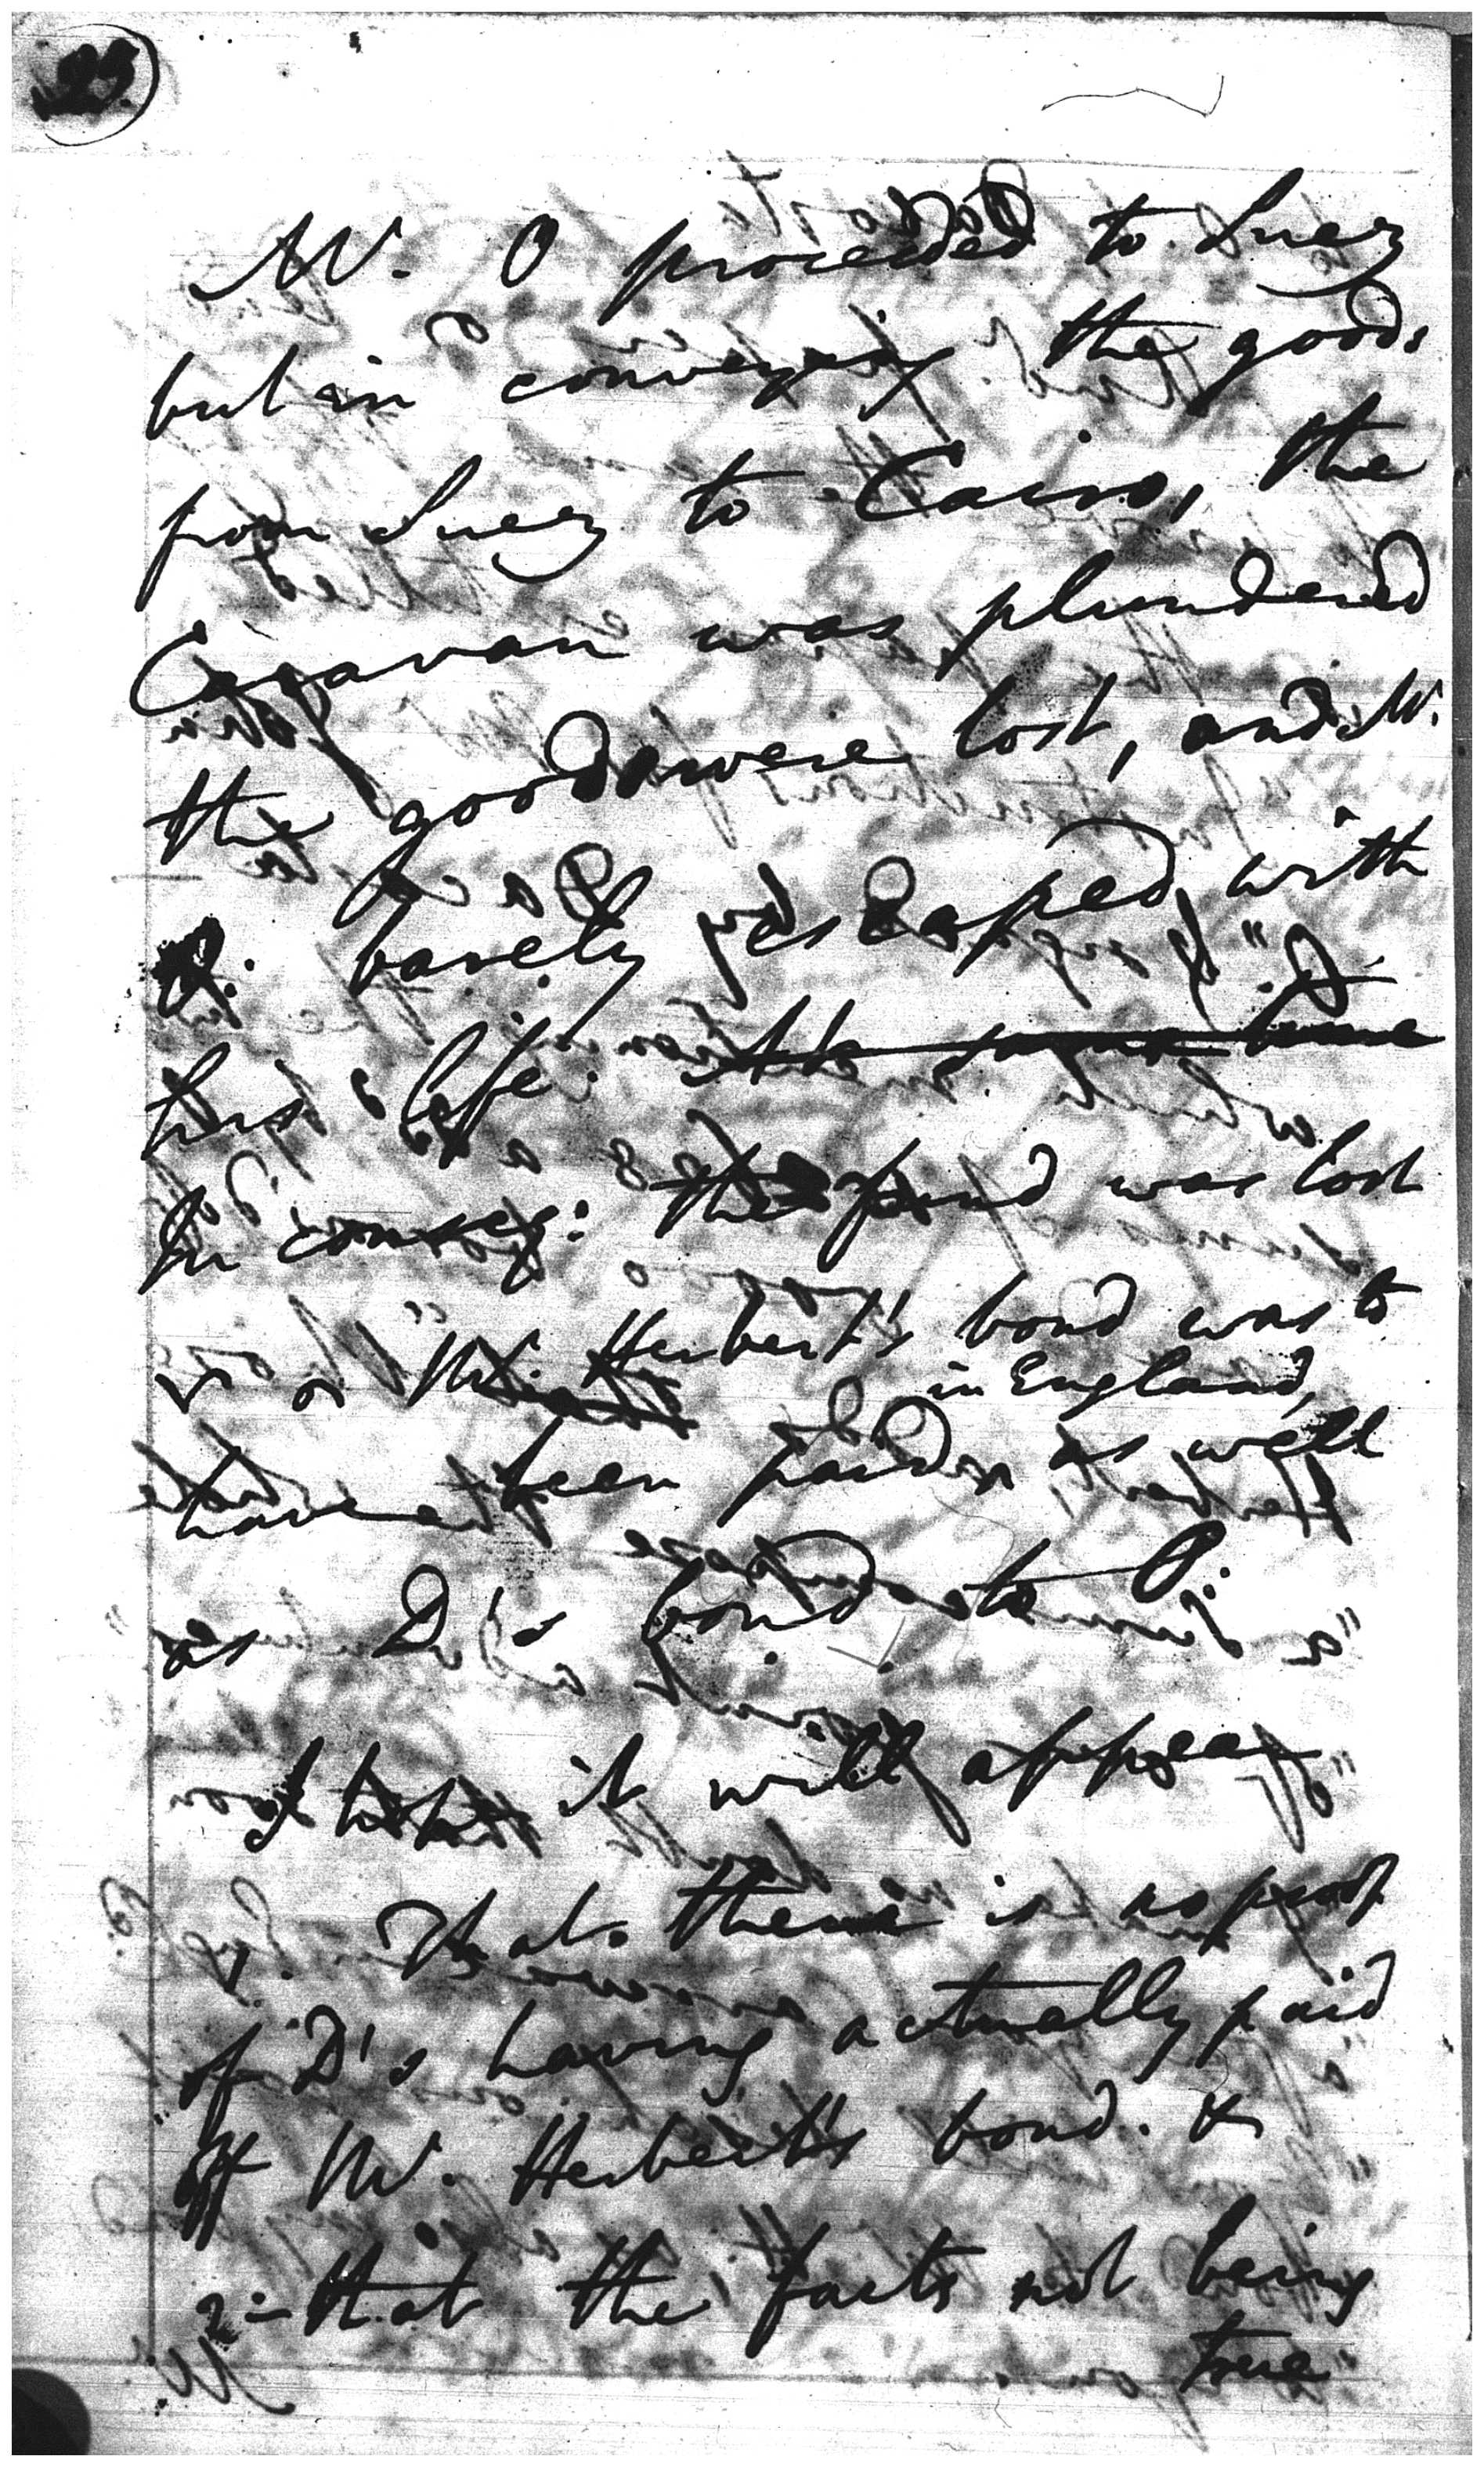 25
Mr. O proceeded to Suez
but in conveying the goods
from Suez to Cairo, the
Caravan was plundered
the goods were lost, and Mr.
O. barely escaped with
his life.
In conseq: the fund was lost
Mr. Herbert's bond was to
in England,
have been paid, as well
as D's bond to P.
it will appear
1. That there is no proof
of D's having actually paid
off Mr. Herbert's bond. &
2 - that the facts not being
true